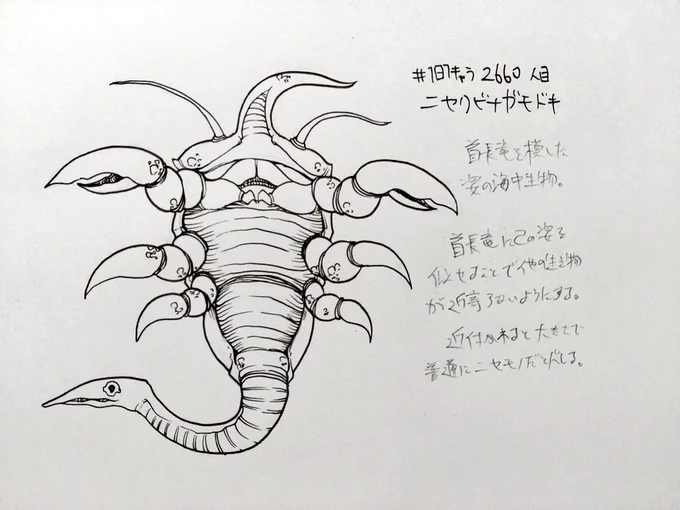 #1日1キャラ 2660人目
ニセクビナガモドキ
首長竜を模した
姿の海中生物。
首長竜に己の姿を
似せることで他の生き物
が近寄らないようにする。
近付かれると大きさで
普通にニセモノだとバレる。